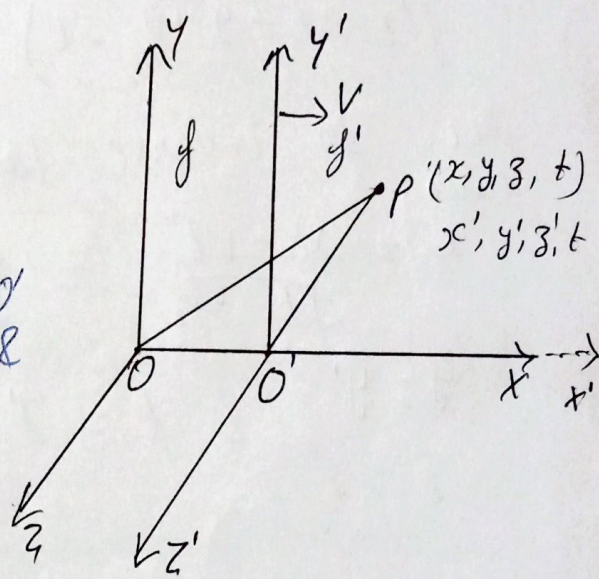 Y Y'
→ V
f f'
P (x, y, z, t)
x', y', z', t
O'
&
O O' X X'
Z Z'